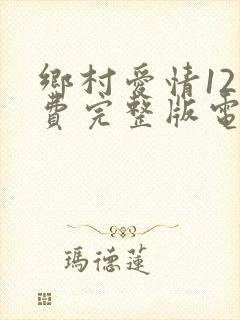 鄉村愛情12
費完整版電
瑪德蓮